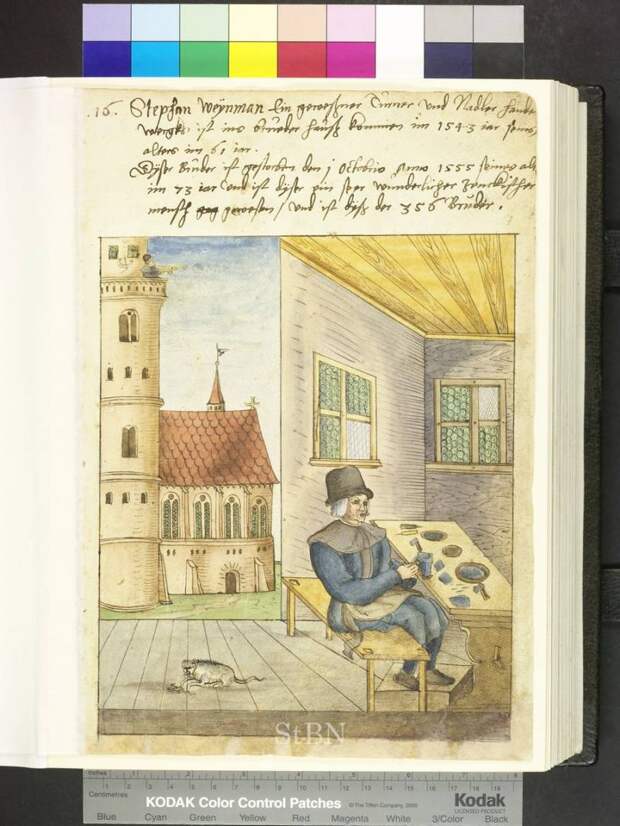 16. Stephan Weÿnman Ein gewesßner Türner und Nadler handt
ist ins Brueder hauß kommen im 1543 iar seines
alters im 61 iar.
Dyser Bruder ist gestorben den 1 Octobris Anno 1555 seines alt
im 73 iar und ist dyser ein ser wunderlicher zenckischer
mensch gewesen / und ist dyß der 356 Bruder.
StBN
Inches
Centimetres
KODAK Color Control Patches
Kodak
LICENSED PRODUCT
Blue Cyan Green Yellow Red Magenta White 3/Color Black